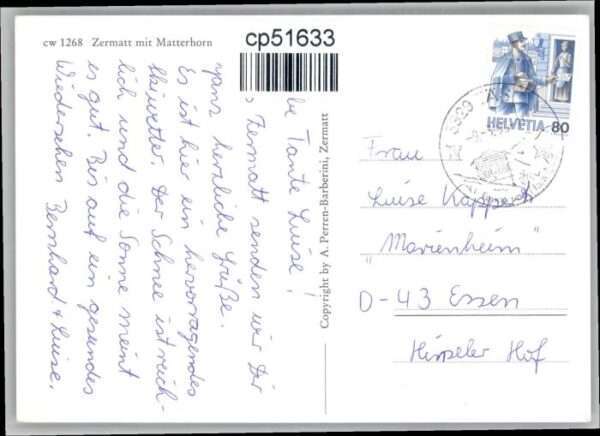 cw 1268 Zermatt mit Matterhorn
cp51633
Tante Luise!
Zermatt senden wir Dir
ganz herzliche Grüße.
Es ist hier ein hervorragendes
Skiwetter. Der Schnee ist reich-
lich und die Sonne meint
es gut. Bis auf ein gesundes
Wiedersehen Bernhard + Luise.
Copyright by A. Perren-Barberini, Zermatt
HELVETIA 80
Frau
Luise Kappert
"Marienheim"
D-43 Essen
Hof